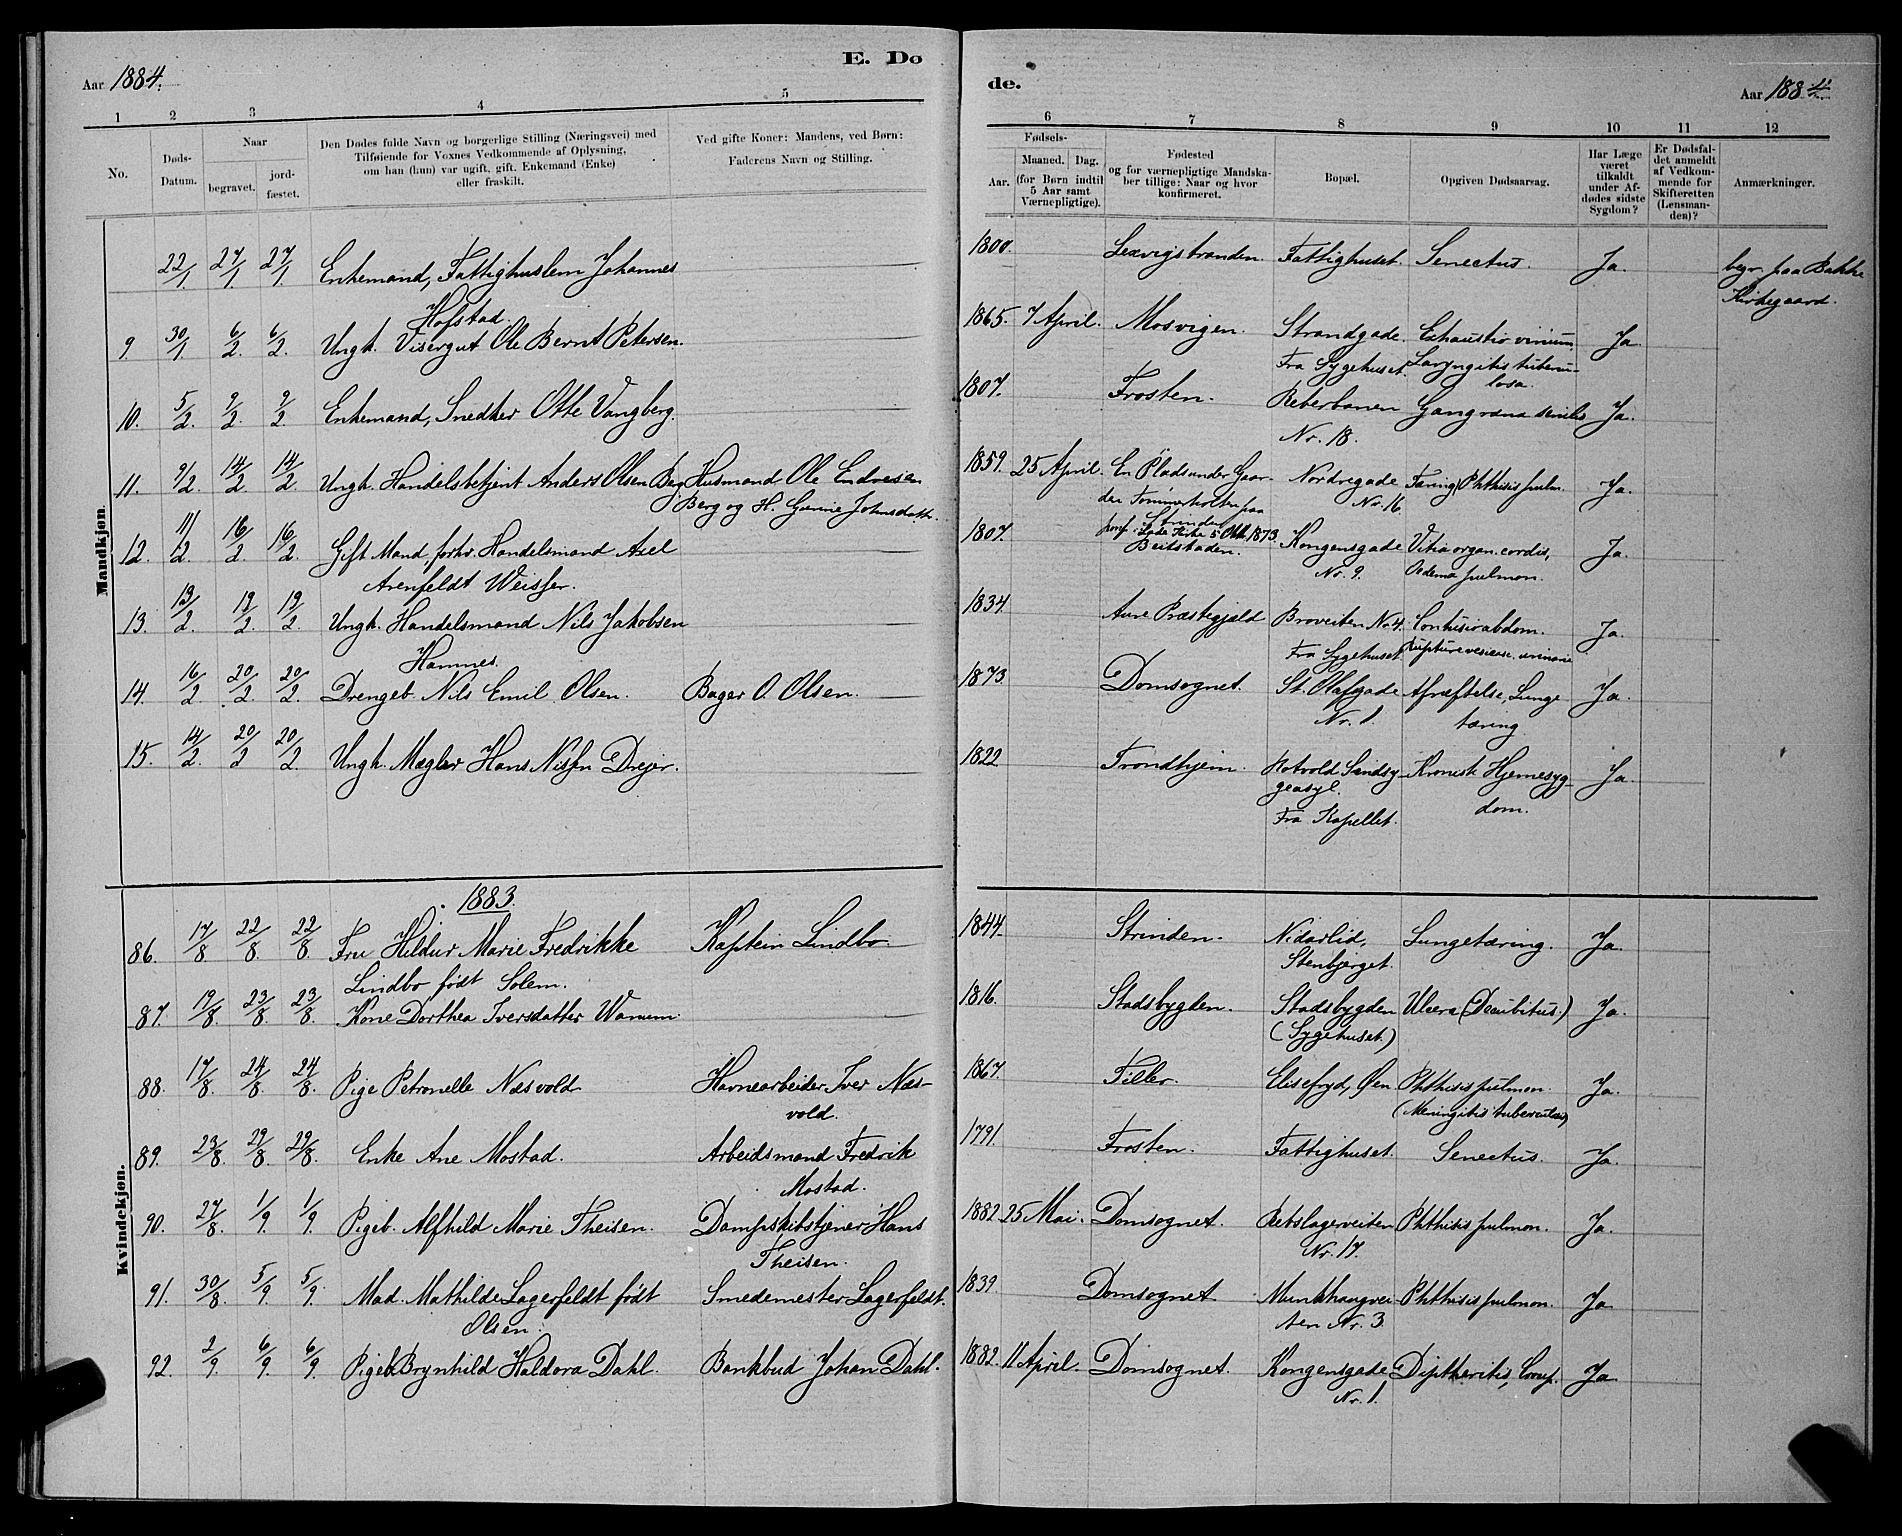 Aar 1884.
E. Dø
1 2 3 4 5
No.
Døds-
Datum.
Naar
begravet.
jord-
fæstet.
Den Dødes fulde Navn og borgerlige Stilling (Næringsvei) med
Tilføiende for Voxnes Vedkommende af Oplysning,
om han (hun) var ugift, gift, Enkemand (Enke)
eller fraskilt.
Ved gifte Koner: Mandens, ved Børn:
Faderens Navn og Stilling.
Mandkjøn.
22/1 27/1 27/1 Enkemand, Fattighuslem Johannes
Hofstad.
9 30/1 6/2 6/2. Ungk. Visergut Ole Bernt Petersen.
10. 5/2. 9/2. 9/2. Enkemand, Snedker Otte Vangberg.
11. 9/2. 14/2 14/2. Ungk. Handelsbetjent Anders Olsen Berg Husmand Ole Endresen
Berg og H. Gurine Johnsdatt.
12. 11/2 16/2 16/2 Gift Mand, forhv. Handelsmand Axel
Arenfeldt Weisser.
13. 13/2. 19/2. 19/2. Ungk. Handelsmand Nils Jakobsen
Hamnes.
14. 16/2 20/2. 20/2. Drengeb. Nils Emil Olsen. Bager O. Olsen.
15. 14/2. 20/2 20/2. Ungk. Mægler Hans Nissen Drejer.
1883.
Kvindekjøn.
86. 17/8 22/8. 22/8. Fru Hildur Marie Fredrikke Kaptein Lindbo
Lindbo født Solem.
87. 19/8. 23/8. 23/8. Kone Dorthea Iversdatter Wanum.
88. 17/8. 24/8. 24/8. Pige Petronelle Næsvold Havnearbeider Iver Næs-
vold.
89. 23/8. 29/8. 29/8. Enke Ane Mostad. Arbeidsmand Fredrik
Mostad.
90. 27/8. 1/9 1/9 Pigeb. Alfhild Marie Theisen. Dampskibstjener Hans
Theisen.
91. 30/8. 5/9. 5/9. Mad. Mathilde Lagerfeldt født Smedemester Lagerfeldt.
Olsen.
92. 2/9. 6/9. 6/9. Pigeb. Brynhild Haldora Dahl. Bankbud Johan Dahl.
de.
Aar 1884
6 7 8 9 10 11 12
Fødsels-
Aar.
Maaned. Dag.
(for Børn indtil
5 Aar samt
Værnepligtige).
Fødested
og for værnepligtige Mandska-
ber tillige: Naar og hvor
konfirmeret.
Bopæl.
Opgiven Dødsaarsag.
Har Læge
været
tilkaldt
under Af-
dødes sidste
Sygdom?
Er Dødsfal-
det anmeldt
af Vedkom-
mende for
Skifteretten
(Lensman-
den)?
Anmærkninger.
1800. Lexvigstranden. Fattighuset. Senectus. Ja. begr. paa Bakke
Kirkegaard.
1865. 7 April. Mosvigen. Strandgade. Exhaustio virium Ja.
Fra Sygehuset. Laryngitis tubercu-
losa.
1807. Frosten. Reberbanen Gangræna senilis Ja.
Nr. 18.
1859. 25 April. En Plads under Gaar- Nordregade Tæring, Phthisis pulm. Ja.
den Tommerholten paa Nr. 16.
Strinden
konf. i Lade Kirke 5 Okt. 1873.
1807. Beitstaden. Kongensgade Vitia organ. cordis, Ja.
Nr. 9. Oedema pulmon.
1834. Aure Præstegjeld Broveiten Nr. 4. Contusio abdom. Ja.
Fra Sygehuset. Ruptura vesicae urinariae
1873. Domsognet. St. Olafsgade Afkræftelse, Lunge Ja.
Nr. 1. tæring
1822 Trondhjem. Rotvold Sindsy- Kronisk Hjernesyg- Ja.
geasyl. dom.
Fra Kapellet.
1844. Strinden. Nidarlid, Lungetæring. Ja.
Stenbjerget.
1816. Stadsbygden. Stadsbygden Ulcera (Decubitus.) Ja.
(Sygehuset.)
1867. Tiller. Elisefryd, Øen Phthisis pulmon. Ja.
(Meningitis tuberculosa)
1791. Frosten. Fattighuset. Senectus. Ja.
1882 25 Mai. Domsognet. Rebslagerveiten Phthisis pulmon. Ja.
Nr. 17.
1839. Domsognet Munkhaugvei- Phthisis pulmon. Ja
ten Nr. 3.
1882. 11 April. Domsognet. Kongensgade Diptheritis, Croup. Ja.
Nr. 1.